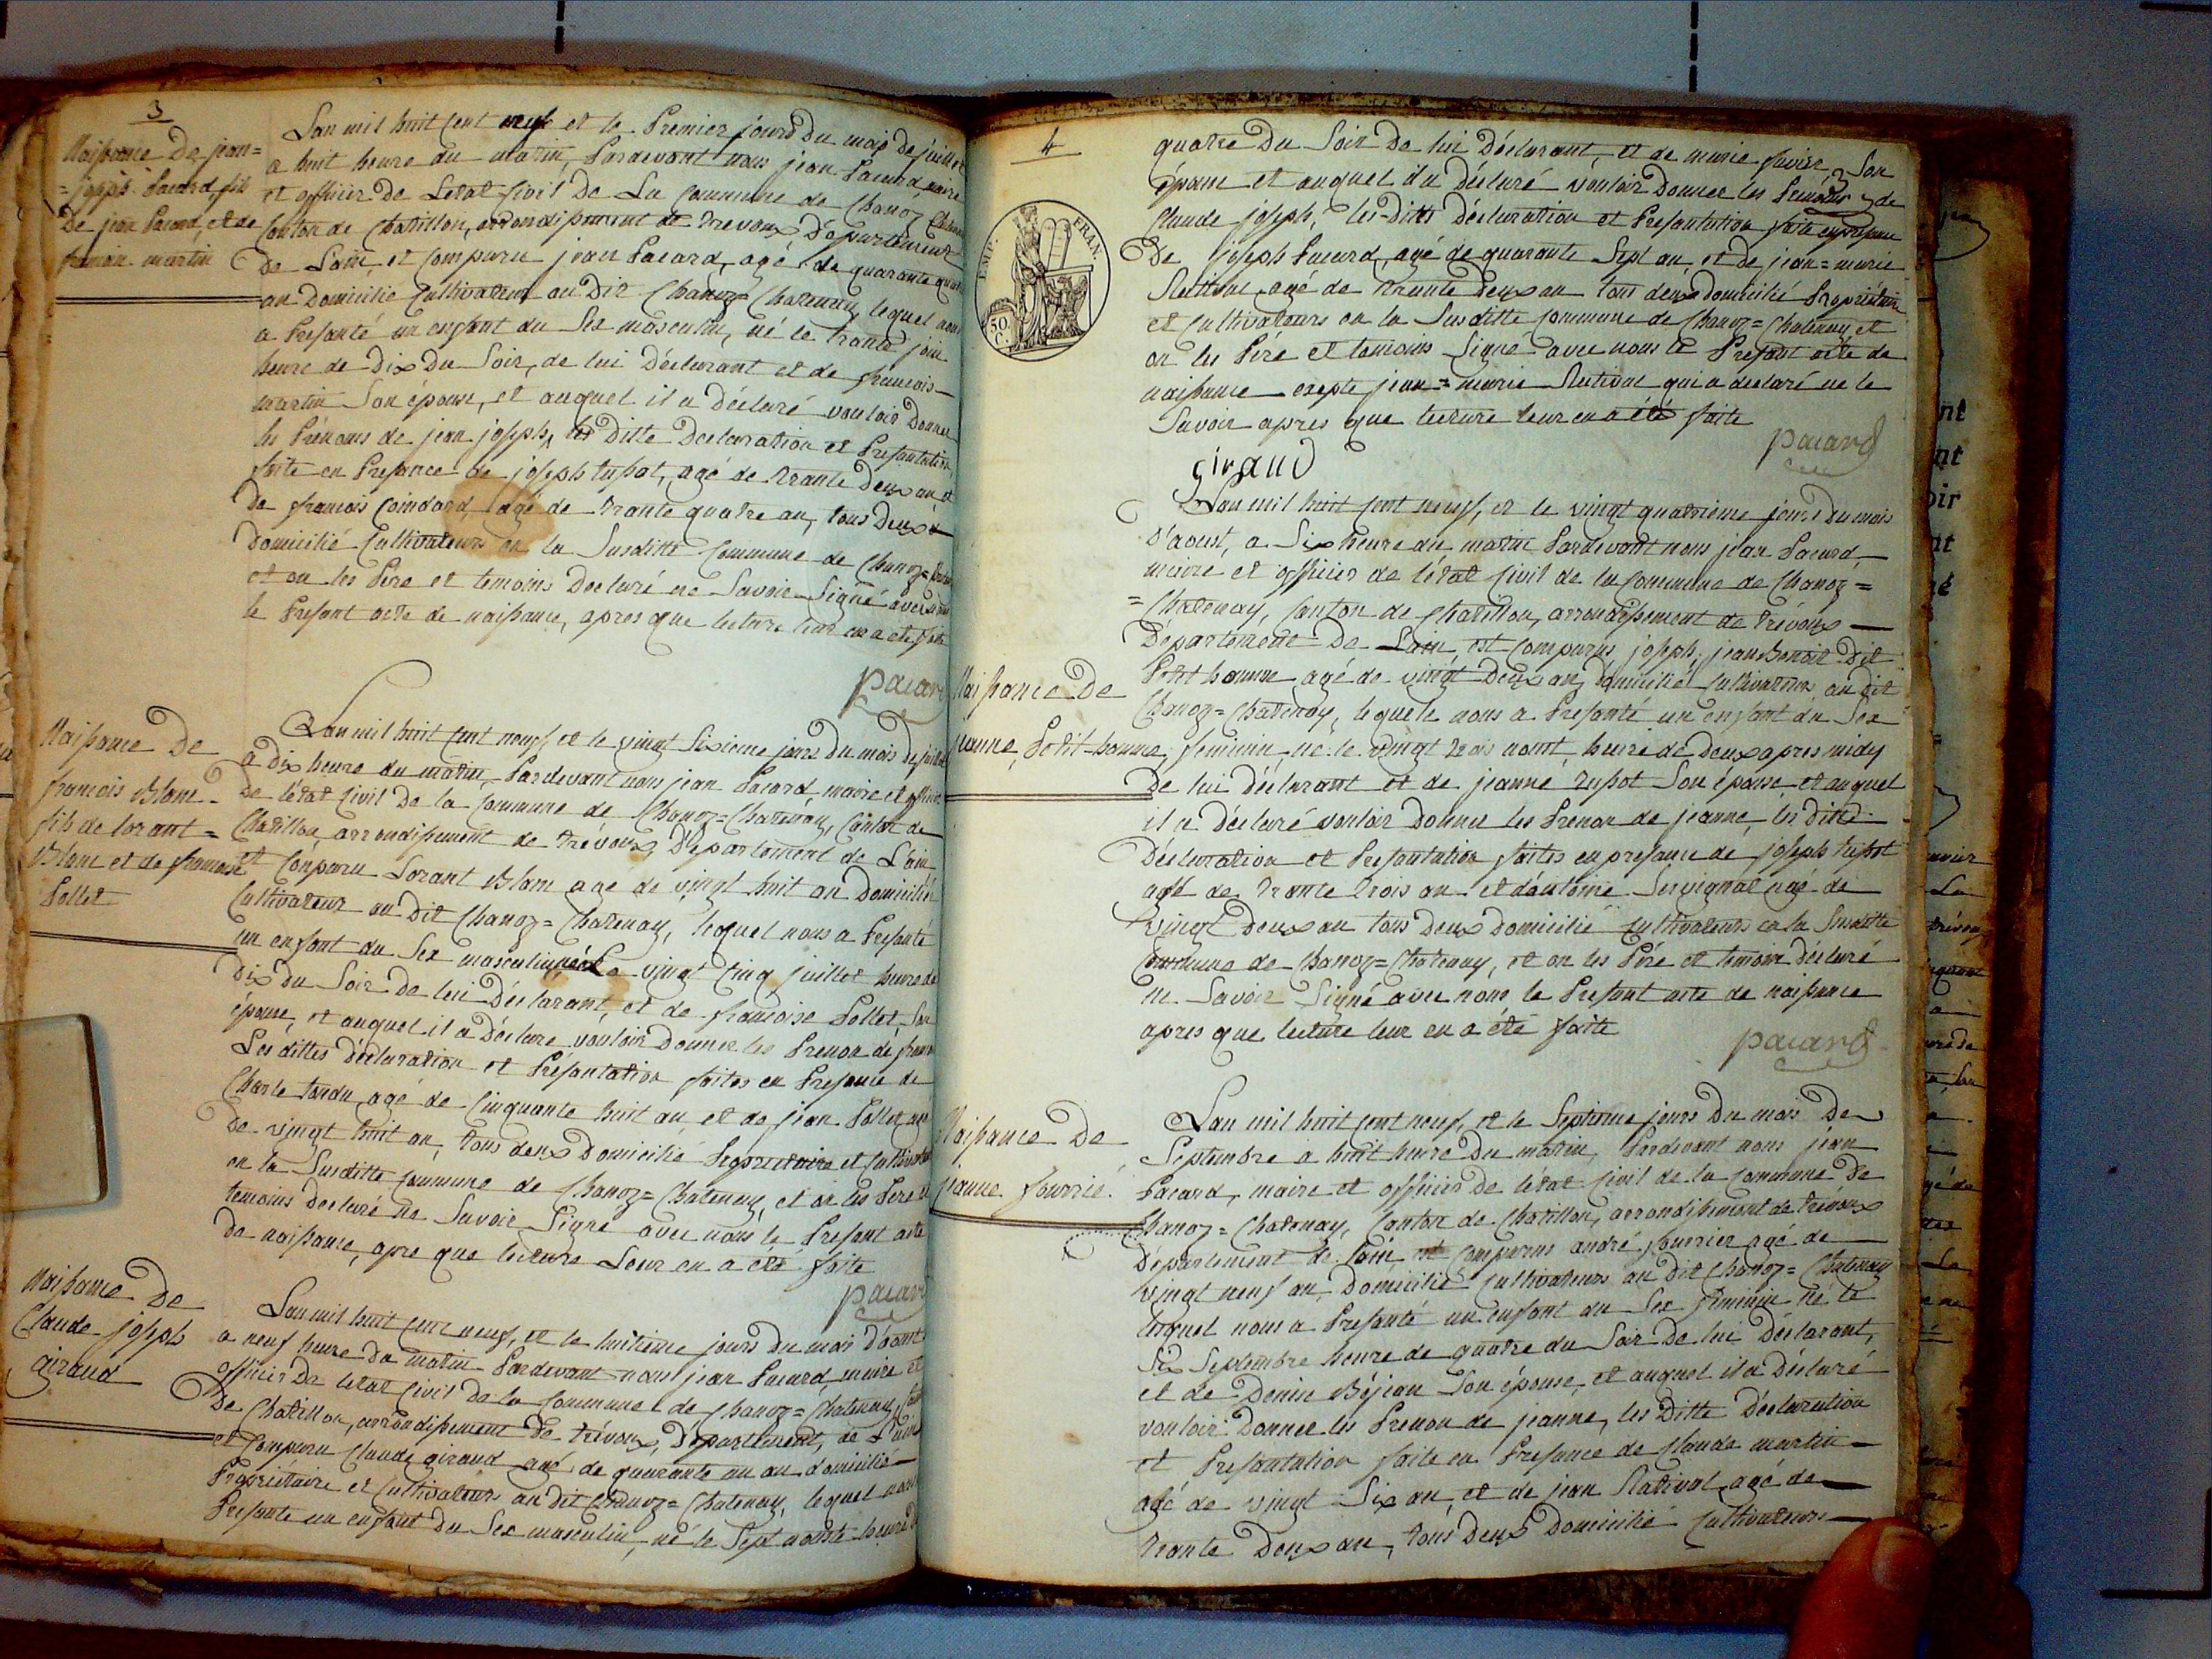 3
Naissance De jean=
=joseph Pacard, fils
De jean Pacard, et de
martin
Lan mil huit cent neuf et le Premier jours du mois de juillet
a huit heure du matin, Pardevant nous jean Pacard maire
et officier De Letat Civil De La Commune de Chanoz
Canton de Chatillon, arrondissement de Trevoux Département
De Lain, et Comparu jean Pacard, agé de quarante
an Domicilié Cultivateur au Dit Chanoz=Chatenay, lequel nous
a Présanté un enfant du Sex masculin, né le trante juin
heure de Dix Du Soir, de lui Déclarant et de francois
martin Son épouse, et auquel il a Déclaré vouloir Donner
les Prénoms de jean joseph, les Ditte Declaration et Présantation
faite en Présance de joseph tussot, agé de trante Deux an et
De francois Coindard, agé de trante quatre an, tous Deux
Domicilié Cultivateurs en la Susditte Commune de Chanoz=
et on les Pere et temoins Declaré ne Savoir Signé avec nous
le Présant acte de naissance, apres que lecture leur en a eté faite
pacard
Naissance De
francois Blanc
fils de lorant=
Blanc et de francoise
Pollet
Lan mil huit Cent neuf, et le vingt Sixieme jours Du mois de juillet
a Dix heure du matin, Pardevant nous jean Pacard maire et officier
De létat Civil De la Commune de Chanoz=Chatenay, Canton de
Chatillon, arrondissement de trévoux, Département de Lain
et Comparu Lorant Blanc agé de vingt huit an Domicilié
Cultivateur au Dit Chanoz=Chatenay, lequel nous a Présanté
un enfant du Sex masculin, né Le vingt Cinq juillet heure de
Dix du Soir De lui Déclarant, et de francoise Pollet, Son
épouse, et auquel il a Déclare vouloir Donner les Prenon de
Les dittes Déclaration et Présantation faites en Présance de
Charle tondu, agé de Cinquante huit an et de jean Pollet, agé
De vingt huit an, tous deux Domicilié Proprietaire et Cultivateur
en la Susditte Commune de Chanoz=Chatenay, et on les Pere et
temoins Declaré ne Savoir Signé avec nous le Présant acte
De naissance, apre que lecture Leur en a été faite
pacard
Naissance De
Claude joseph
giraud
Lan mil huit Cent neuf, et le huitieme jours du mois Doaut
a neuf heure du matin Pardevant nous jean Pacard, maire et
officier De letat Civil de la Commune de Chanoz=Chatenay,
De Chatillon, arrondissement de trévoux, Département, de Lain
et Comparu Claude giraud agé de quarante un an domicilié
Propriettaire et Cultivateur au dit Chanoz=Chatenay, lequel nous
Présante un enfant du Sex masculin, né le Sept heure
4
EMP. FRAN.
50 C.
quatre Du Soir De lui Déclarant, et de marie favier, Son
épouse et auquel il a Déclaré vouloir Donner les Prenoms de
Claude joseph, les Ditts Déclaration et Présantation faite en présance
De joseph Pacard, agé de quarante Sept an, et de jean=marie
agé de trante Deux an tous deux domicilié Propriétaire
et Cultivateurs en la Susditte Commune de Chanoz=Chatenay et
on les Pére et temoins Signe avec nous le Présant acte de
naissance exepte jean=marie qui a declaré ne le
Savoir apres que lecture leur en a été faite
pacard
giraud
Lan mil huit Cent neuf, et le vingt quatrieme jours du mois
D'aoust, a Six heure du matin Pardevant nous jean Pacard,
maire et officier de létat Civil de la Commune de Chanoz=
=Chatenay, Canton de Chatillon, arrondissement de trévoux
Département De Lain, est Comparus joseph, jean Benoit Dit
Petit homme agé de vingt Deux an, Domicilié Cultivateur au Dit
Chanoz=Chatenay, lequele nous a Présanté un enfant du Sex
feminin, né le vingt trois heure de Deux apres midy
De lui Déclarant et de jeanne tussot Son épouse, et auquel
il a Déclaré vouloir Donner les Prenon de jeanne, les ditte
Déclaration et Présantation faites en présance de joseph tussot
agé de trante trois an et Servignat agé de
vingt Deux an tous Deux Domicilié Cultivateurs en la Susditte
Commune de Chanoz=Chatenay, et on les Pére et temoin Déclaré
ne Savoir Signé avec nous le Présant acte de naissance
apres que lecture leur en a été faite
pacard
Naissance De
jeanne Petit-homme
Naissance De
jeanne fourrié.
Lan mil huit Cent neuf, et le Septieme jours Du mois De
Septembre a huit heure Du matin, Pardevant nous jean
Pacard, maire et officier de létat Civil de la Commune De
Chanoz=Chatenay, Canton de Chatillon, arrondissement de trévoux
Département de Lain, et Comparus andré fourrier agé de
vingt neuf an, Domicilié Cultivateurs au Dit Chanoz=Chatenay
lequel nous a Présanté un enfant du Sex féminin né le
Six Septembre heure de quatre du Soir De lui Déclarant,
et de Denise Béjean Son épouse, et auquel il a Déclaré
vouloir Donner les Prenon de jeanne, les Ditte Déclaration
et Présantation faite en Présance de Claude martin
agé de vingt Six an, et de jean agé de
trante Deux an, tous Deux Domicilié Cultivateurs